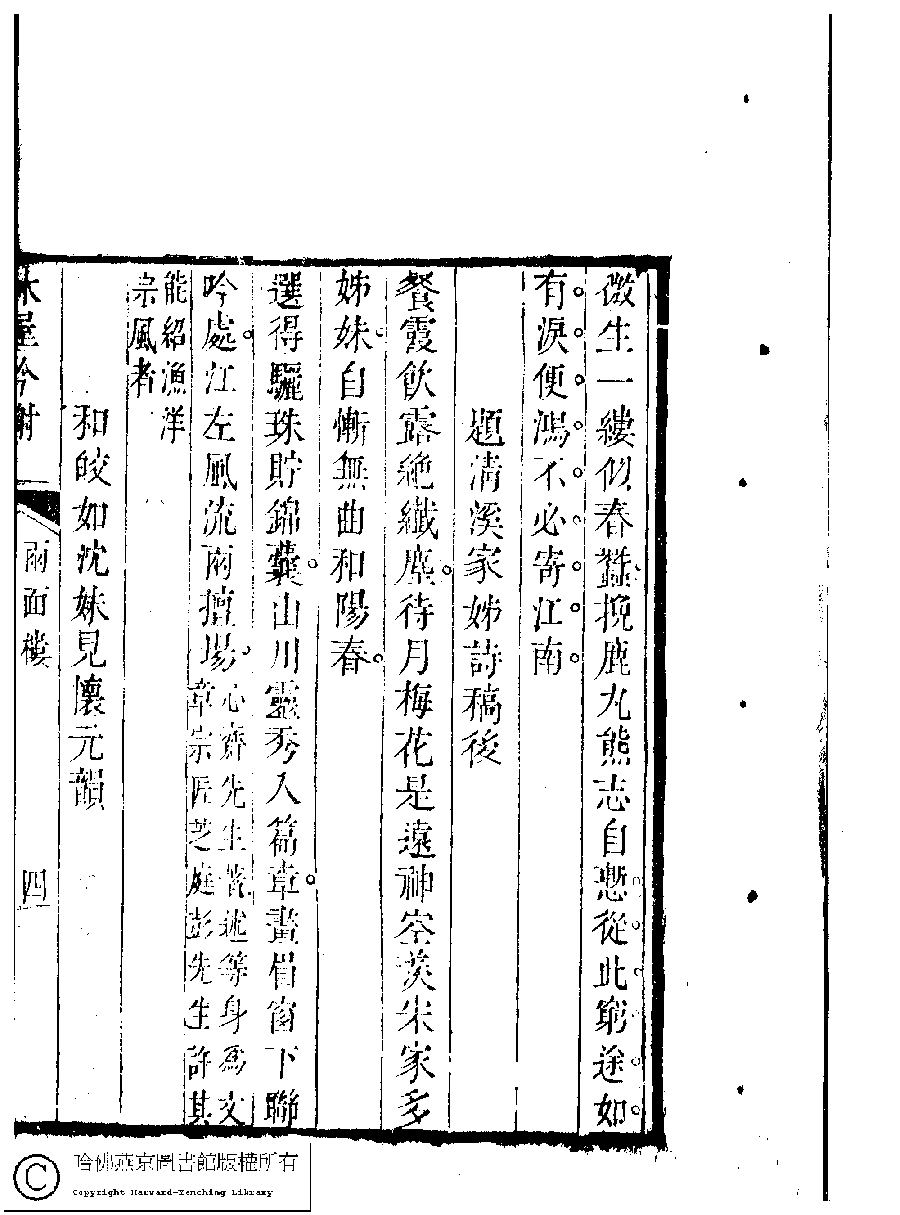 微生一縷似春蠶挽鹿丸熊志自慙從此窮途如
有淚便鴻不必寄江南
題清溪家姊詩稿後
餐霞飲露絶纖塵待月梅花是遠神空羨宋家多
姊妹自慚無曲和陽春
選得驪珠貯錦囊山川靈秀入篇章畫眉窗下聯
吟處江左風流兩擅場心齋先生著述等身爲文
章宗匠芝庭彭先生許其
能紹漁洋
宗風者
和皎如沈妹見懷元韻
雨面樓
四
哈佛燕京圖書館版權所有
Copyright Harvard-Yenching Library